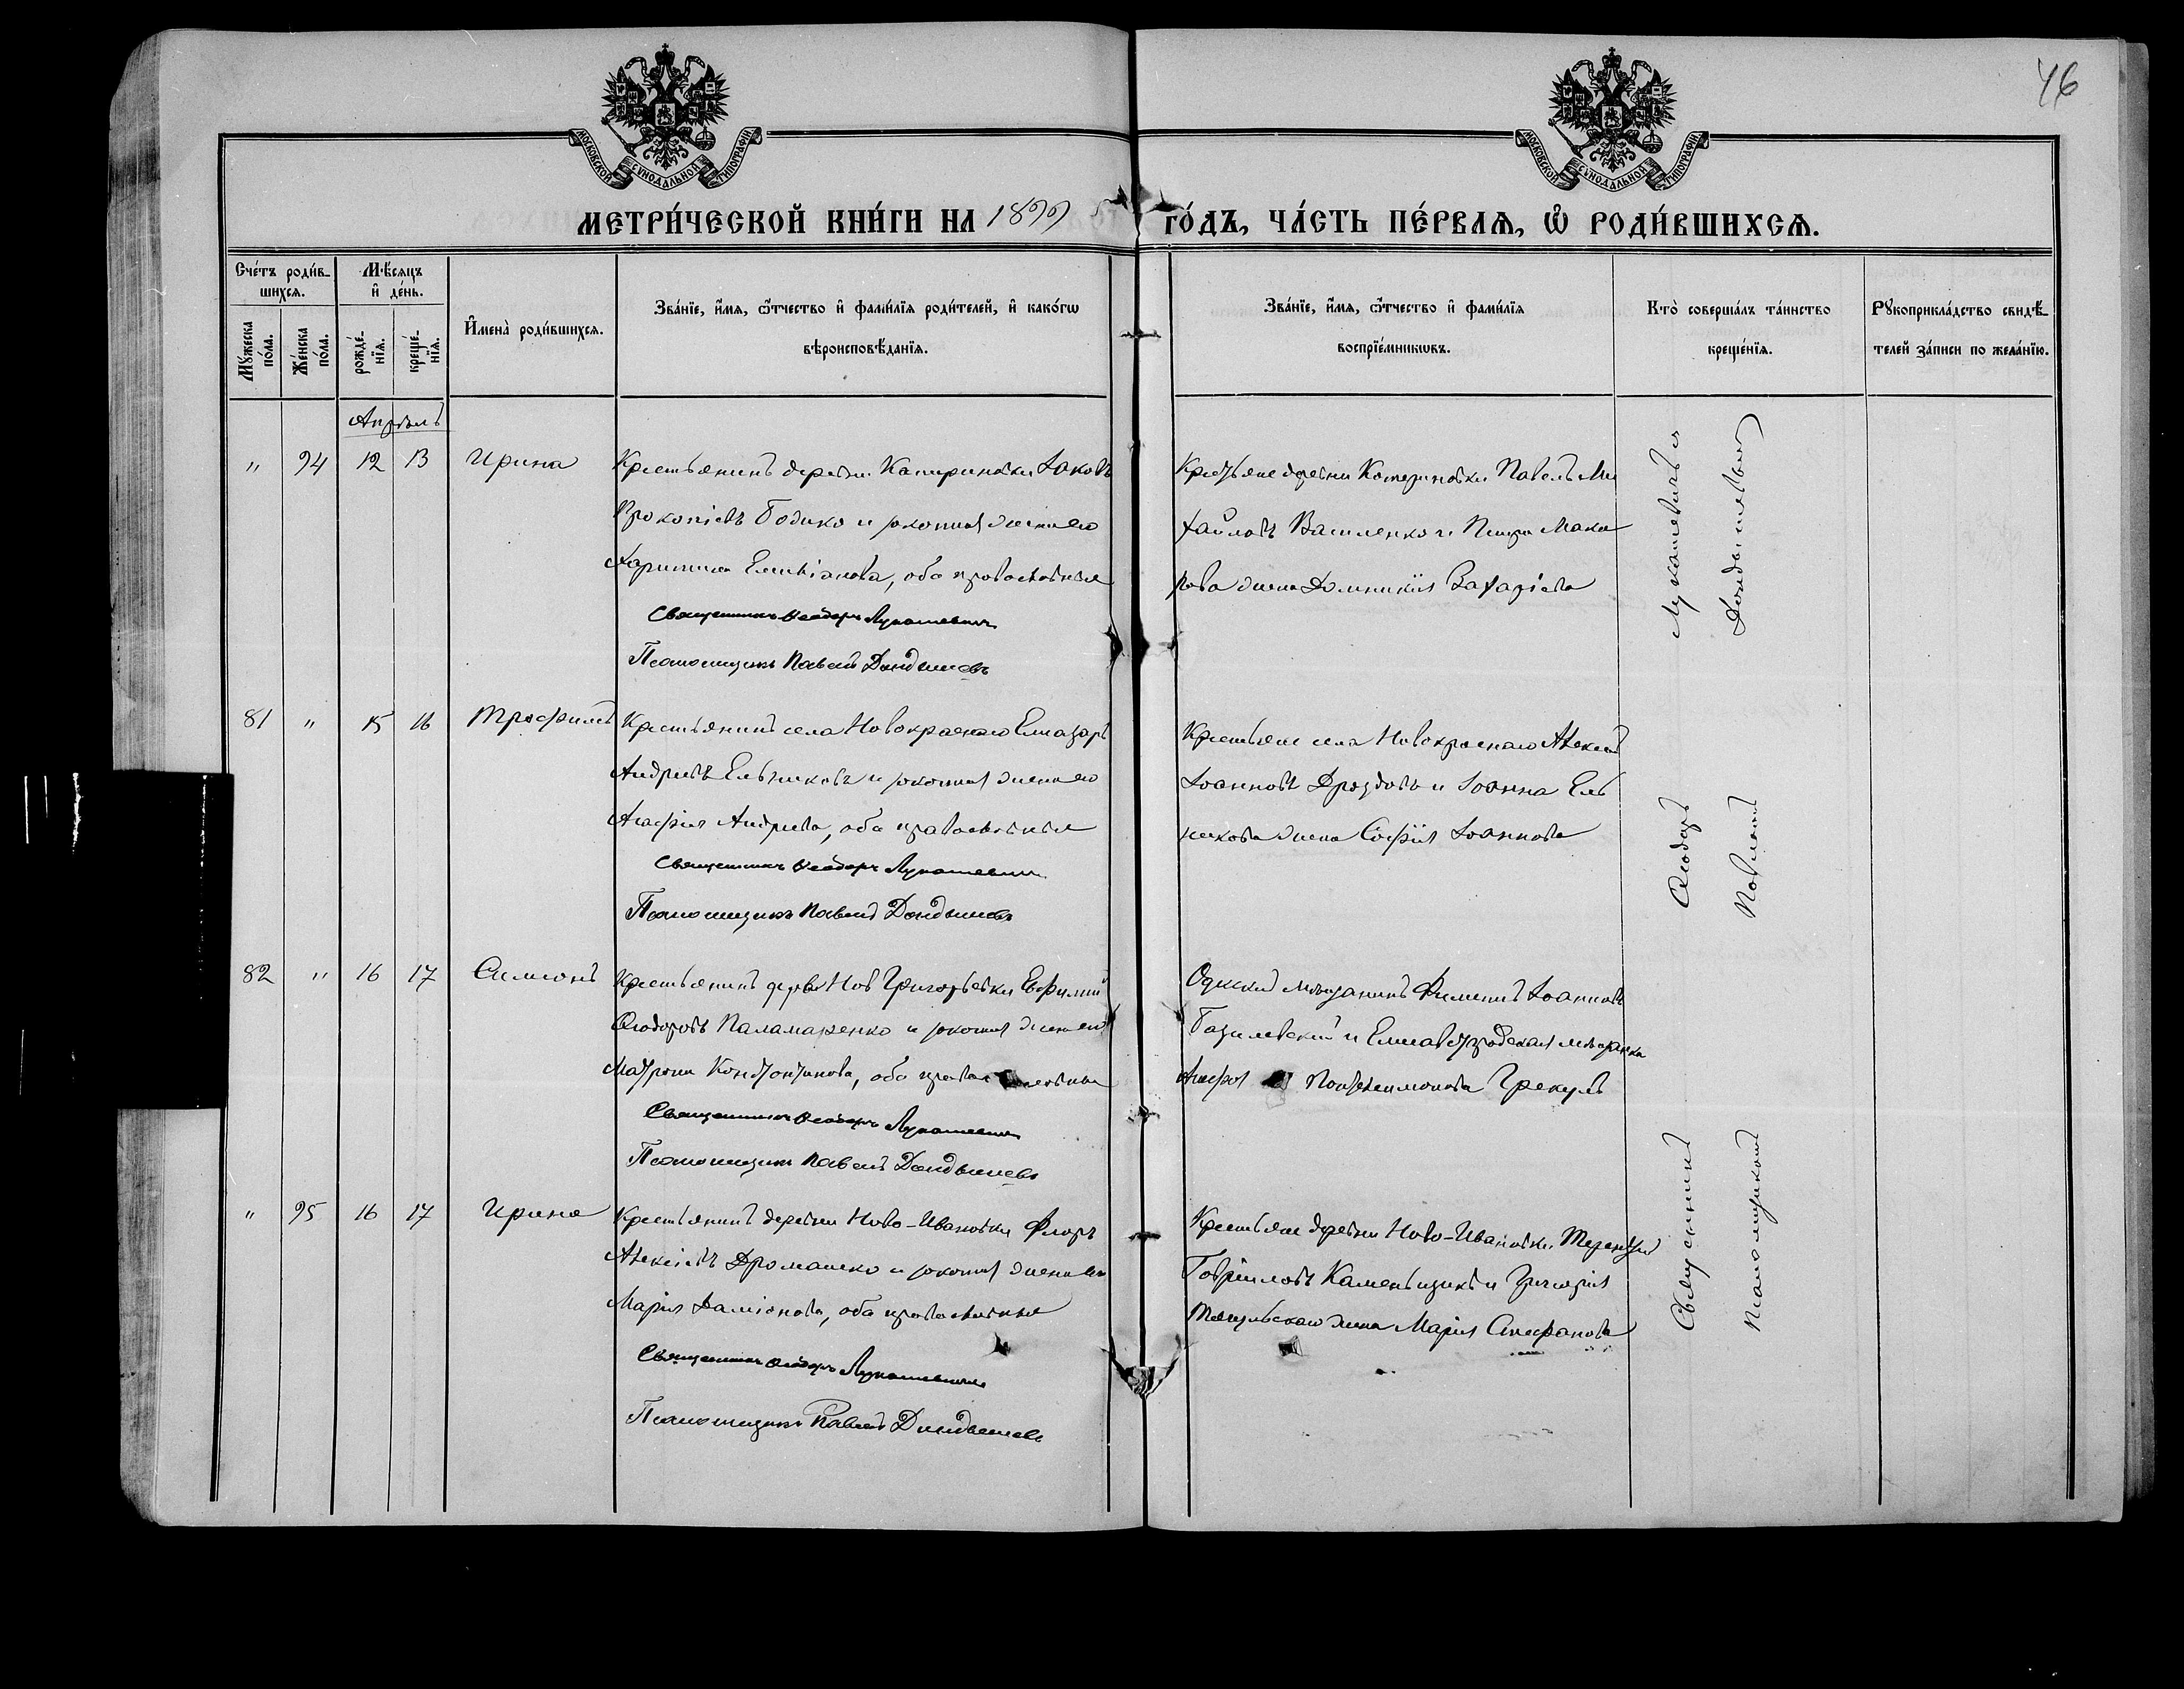 46
МОСКОВСКОЙ СѴНОДАЛЬНОЙ ТИПОГРАФІИ
МОСКОВСКОЙ СѴНОДАЛЬНОЙ ТИПОГРАФІИ
МЕТРИ́ЧЕСКОЙ КНИ́ГИ НА 1899 ГО́ДЪ, ЧА́СТЬ ПЕ́РВАѦ, Ѽ РОДИ́ВШИХСѦ.
Сче́тъ роди́в-
шихсѧ.
Мꙋ́жеска по́ла.
Же́нска по́ла.
Мѣ́сяцъ
и҆ де́нь.
рожде́-
нїѧ.
креще́-
нїѧ.
И҆мена̀ роди́вшихсѧ.
Зва́нїе, и҆́мѧ, ѻ҆́тчество и҆ фами́лїѧ роди́телей, и҆ како́гѡ
вѣроисповѣ́данїѧ.
Зва́нїе, и҆́мѧ, ѻ҆́тчество и҆ фами́лїѧ
воспрїе́мникѡвъ.
Кто̀ соверша́лъ та́инство
креще́нїѧ.
Рꙋкоприкла́дство свидѣ́-
телей за́писи по жела́нїю.
Апрѣль
" 94 12 13 Ирина
Крестьянинъ деревни Катериновки Іаковъ
Прокопіевъ Бодико и законная жена его
Харитина Емиліанова, оба православные
Священникъ Ѳеодоръ Лукашевичъ
Псаломщикъ Павелъ Дандышевъ
Крестьяне деревни Катериновки Павелъ Ми
хайловъ Василенко и Петра Мака
рова жена Домникія Захаріева
81 " 15 16 Трофимъ
Крестьянинъ села Новокраснаго Елиазаръ
Андреевъ Ельниковъ и законная жена его
Агафія Андреева, оба православные
Священникъ Ѳеодоръ Лукашевичъ
Псаломщикъ Павелъ Дандышевъ
Крестьяне села Новокраснаго Алексій
Іоанновъ Дроздовъ и Іоанна Ель
никова жена Софія Іоаннова
82 " 16 17 Симеонъ
Крестьянинъ дерев Нов Григорьевки Евфимій
Ѳеодоровъ Паламаренко и законная жена его
Матрона Константинова, оба православные
Священникъ Ѳеодоръ Лукашевичъ
Псаломщикъ Павелъ Дандышевъ
Одесскій мѣщанинъ Филиппъ Іоанновъ
Базилевскій и Елисаветградская мѣщанка
Агафія Пантелеимонова Грекулъ
" 95 16 17 Ирина
Крестьянинъ деревни Ново-Ивановки Флоръ
Алексіевъ Дромашко и законная жена его
Марія Даміанова, оба православные
Священникъ Ѳеодоръ Лукашевичъ
Псаломщикъ Павелъ Дандышевъ
Крестьяне деревни Ново-Ивановки Терентій
Гавріиловъ Каменьщикъ и Григорія
жена Марія Стефанова
Священникъ Ѳеодоръ Лукашевичъ и
Псаломщикъ Павелъ Дандышевъ